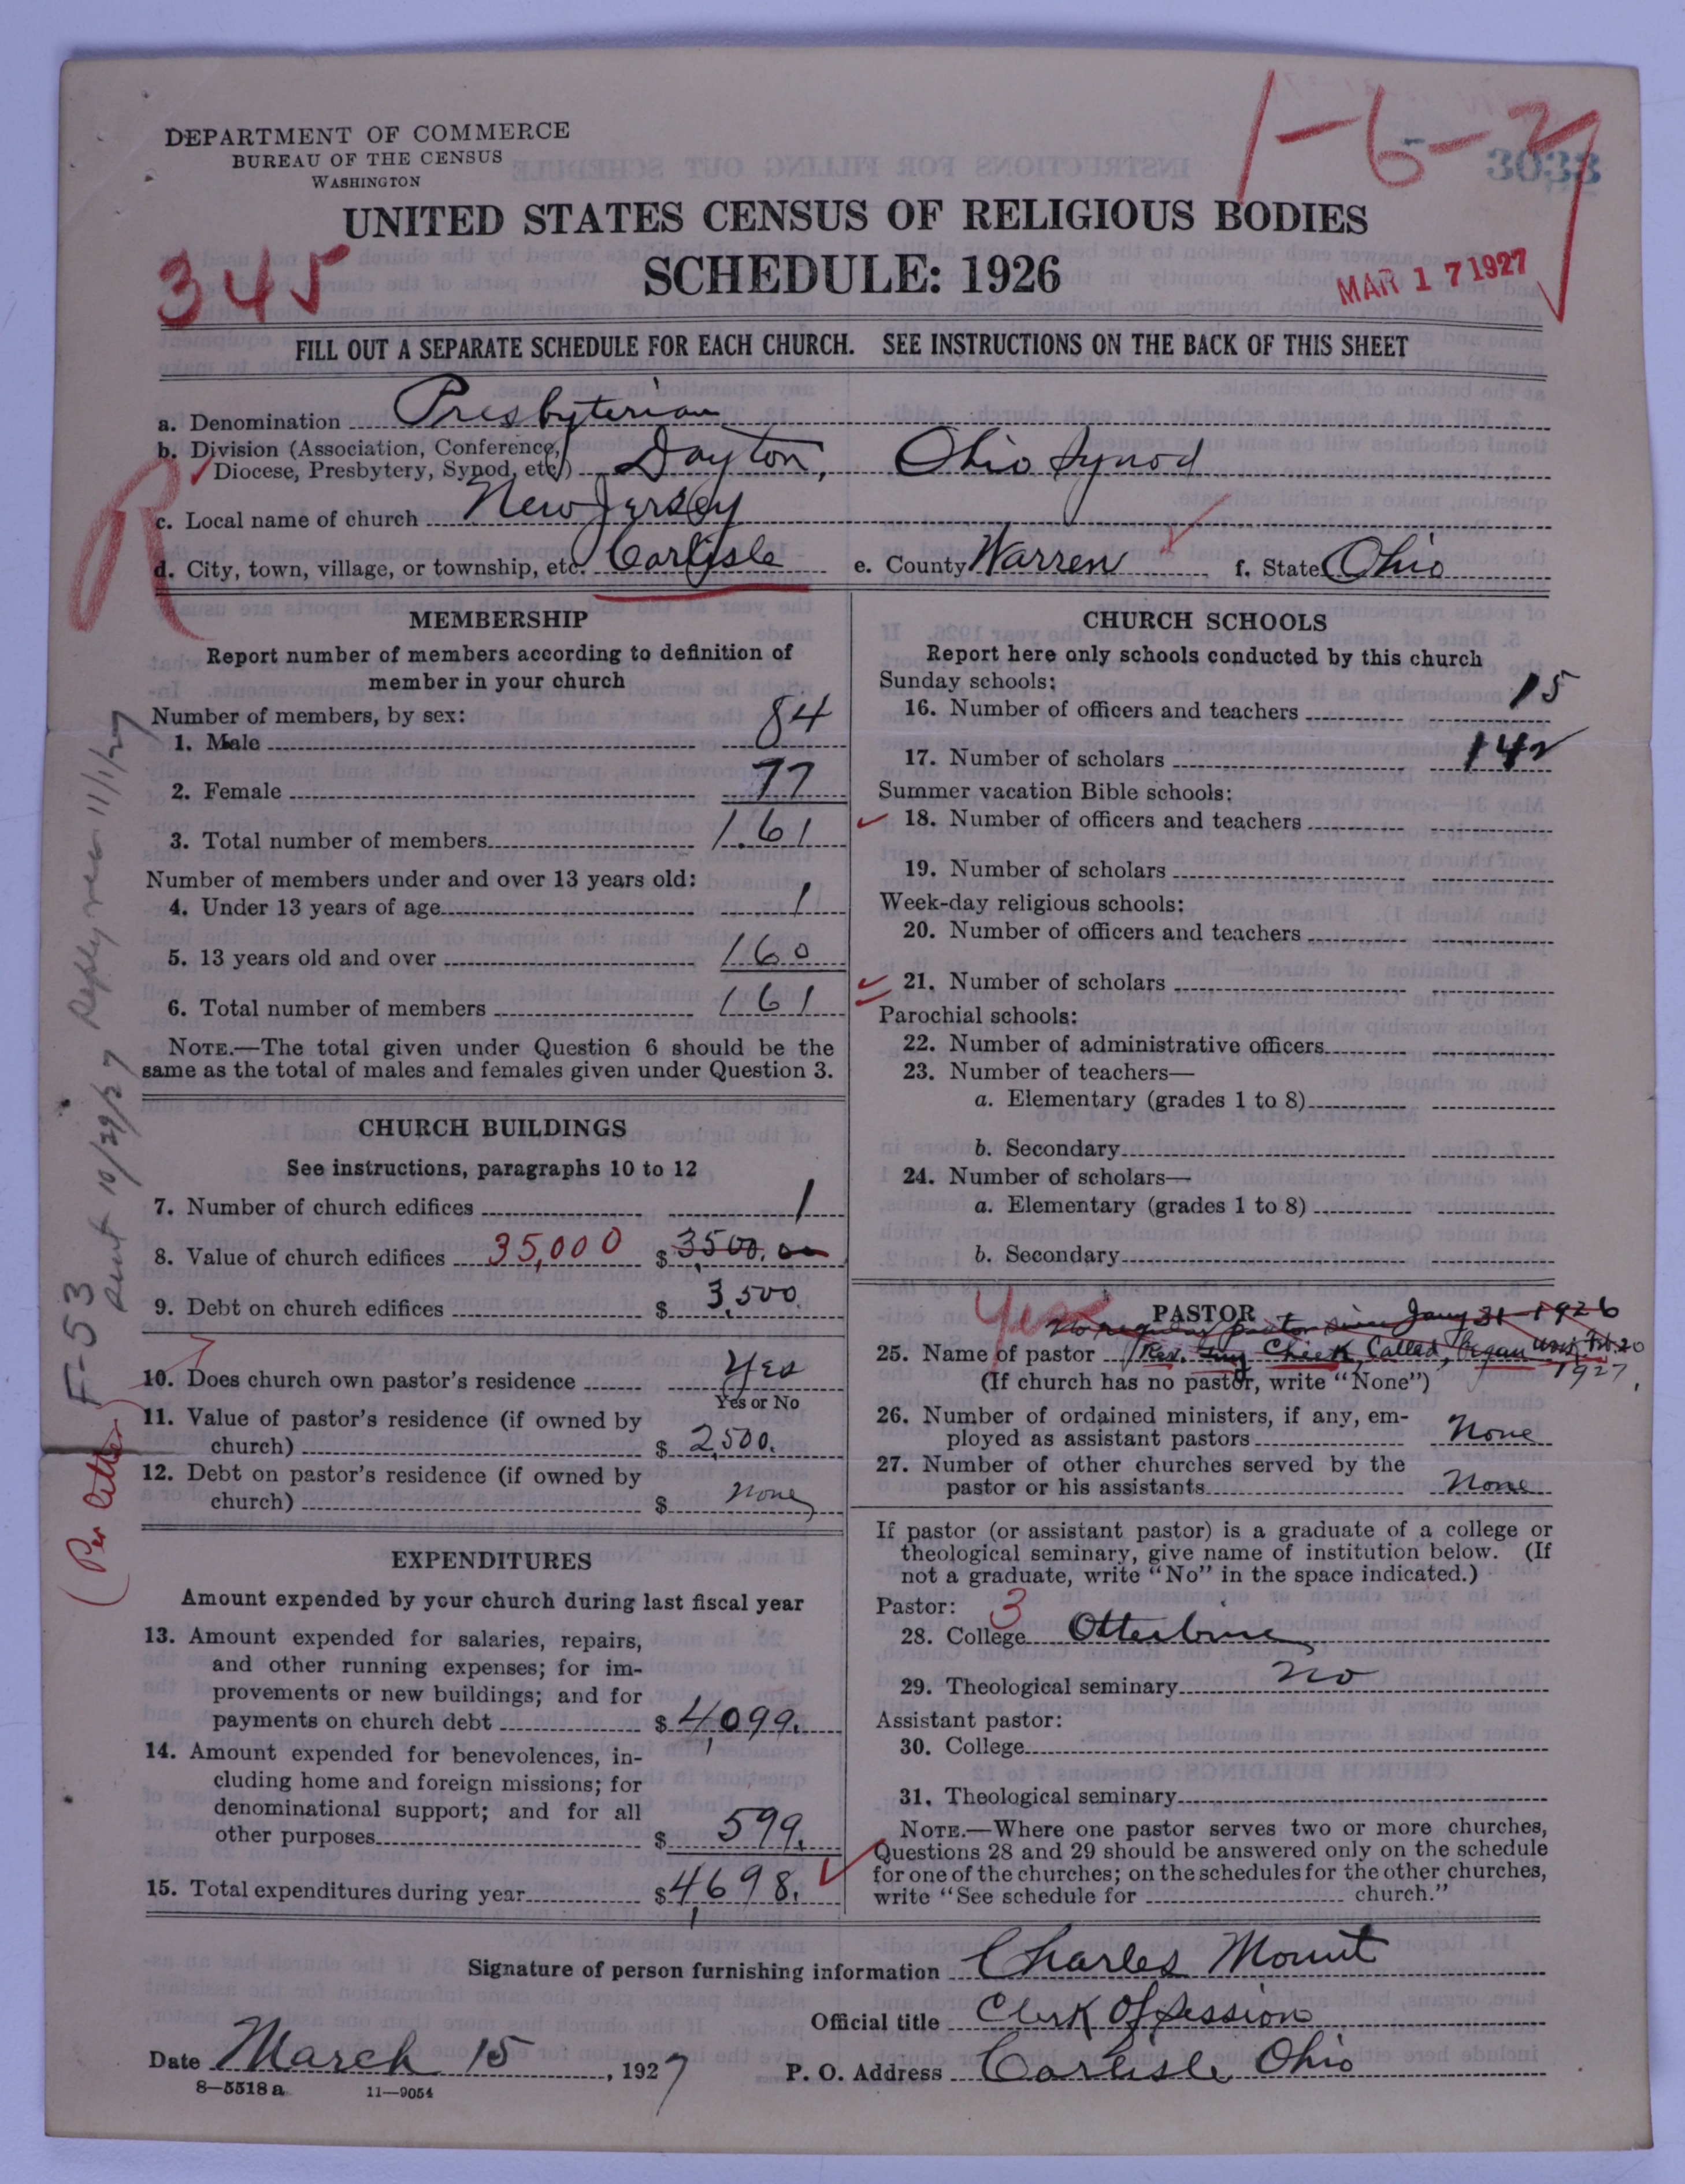 DEPARTMENT OF COMMERCE
BUREAU OF THE CENSUS
WASHINGTON
1-6-27
3033
UNITED STATES CENSUS OF RELIGIOUS BODIES
345
SCHEDULE: 1926
MAR 17 1927
FILL OUT A SEPARATE SCHEDULE FOR EACH CHURCH. SEE INSTRUCTIONS ON THE BACK OF THIS SHEET
a. Denomination Presbyterian
b. Division (Association, Conference,
Diocese, Presbytery, Synod, etc.) Dayton, Ohio Synod
R
c. Local name of church New Jersey
d. City, town, village, or township, etc. Carlisle e. County Warren f. State Ohio
MEMBERSHIP
Report number of members according to definition of
member in your church
Number of members, by sex:
1. Male 84
2. Female 77
3. Total number of members 161
Number of members under and over 13 years old:
4. Under 13 years of age 1
5. 13 years old and over 160
6. Total number of members 161
NOTE.—The total given under Question 6 should be the
same as the total of males and females given under Question 3.
CHURCH BUILDINGS
See instructions, paragraphs 10 to 12
7. Number of church edifices 1
8. Value of church edifices 35,000 $ 3500.00
9. Debt on church edifices $ 3,500.
10. Does church own pastor's residence Yes
Yes or No
11. Value of pastor's residence (if owned by
church) $ 2,500.
12. Debt on pastor's residence (if owned by
church) $ none
EXPENDITURES
Amount expended by your church during last fiscal year
13. Amount expended for salaries, repairs,
and other running expenses; for im-
provements or new buildings; and for
payments on church debt $ 4,099.
14. Amount expended for benevolences, in-
cluding home and foreign missions; for
denominational support; and for all
other purposes $ 599.
15. Total expenditures during year $ 4,698.
F-53 Sent 10/29/27 Reply rec 11/1/27
(Per letter)
CHURCH SCHOOLS
Report here only schools conducted by this church
Sunday schools:
16. Number of officers and teachers 15
17. Number of scholars 142
Summer vacation Bible schools:
18. Number of officers and teachers
19. Number of scholars
Week-day religious schools:
20. Number of officers and teachers
21. Number of scholars
Parochial schools:
22. Number of administrative officers
23. Number of teachers—
a. Elementary (grades 1 to 8)
b. Secondary
24. Number of scholars—
a. Elementary (grades 1 to 8)
b. Secondary
Yes
PASTOR
No regular pastor since Jany 31-1926
25. Name of pastor Rev. Guy Cheek, Called, Began work Feb. 20
1927.
(If church has no pastor, write "None")
26. Number of ordained ministers, if any, em-
ployed as assistant pastors None
27. Number of other churches served by the
pastor or his assistants None
If pastor (or assistant pastor) is a graduate of a college or
theological seminary, give name of institution below. (If
not a graduate, write "No" in the space indicated.)
Pastor: 3
28. College Otterbine
29. Theological seminary No
Assistant pastor:
30. College
31. Theological seminary
NOTE.—Where one pastor serves two or more churches,
Questions 28 and 29 should be answered only on the schedule
for one of the churches; on the schedules for the other churches,
write "See schedule for church."
Signature of person furnishing information Charles Mount
Official title Clerk Of Session
Date March 15, 1927 P. O. Address Carlisle Ohio
8—5518 a 11—9054